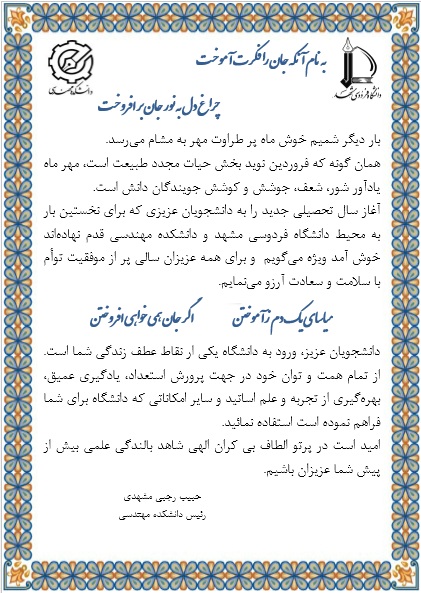 به نام آنکه جان را فکرت آموخت
دانشگاه فردوسی مشهد
دانشکده مهندسی
چراغ دل به نور جان برافروخت
بار دیگر شمیم خوش ماه پر طراوت مهر به مشام می‌رسد.
همان گونه که فروردین نوید بخش حیات مجدد طبیعت است، مهر ماه
یادآور شور، شعف، جوشش و کوشش جویندگان دانش است.
آغاز سال تحصیلی جدید را به دانشجویان عزیزی که برای نخستین بار
به محیط دانشگاه فردوسی مشهد و دانشکده مهندسی قدم نهاده‌اند
خوش آمد ویژه می‌گویم و برای همه عزیزان سالی پر از موفقیت توأم
با سلامت و سعادت آرزو می‌نمایم.
میاسای یک دم ز آموختن اگر جان همی خواهی افروختن
دانشجویان عزیز، ورود به دانشگاه یکی از نقاط عطف زندگی شما است.
از تمام همت و توان خود در جهت پرورش استعداد، یادگیری عمیق،
بهره‌گیری از تجربه و علم اساتید و سایر امکاناتی که دانشگاه برای شما
فراهم نموده است استفاده نمائید.
امید است در پرتو الطاف بی کران الهی شاهد بالندگی علمی بیش از
پیش شما عزیزان باشیم.
حبیب رجبی مشهدی
رئیس دانشکده مهندسی